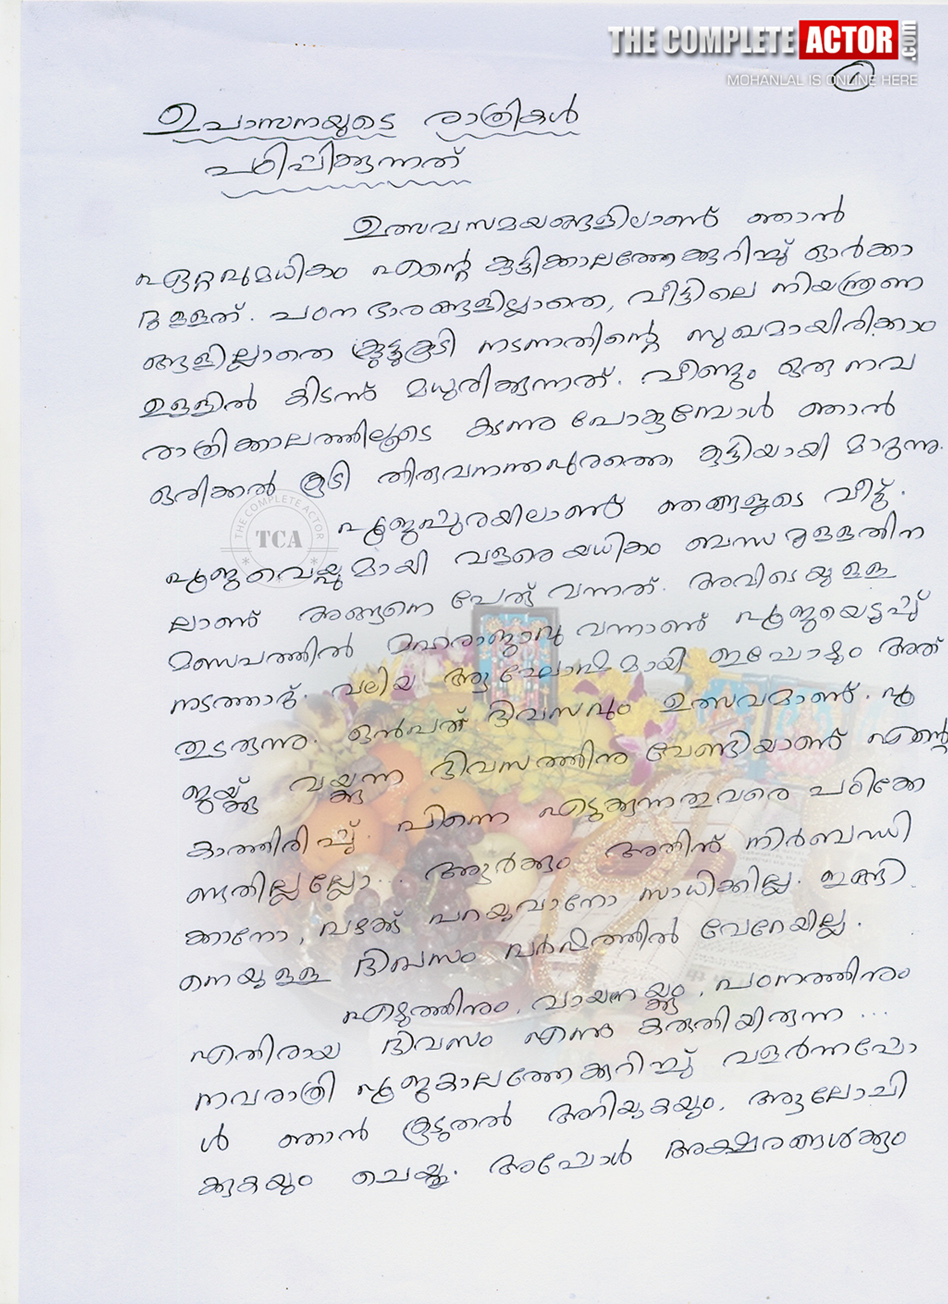 THE COMPLETE ACTOR.com
MOHANLAL IS ONLINE HERE
1
ഉപാസനയുടെ രാത്രികൾ
പഠിപ്പിക്കുന്നത്
ഉത്സവസമയങ്ങളിലാണ് ഞാൻ
ഏറ്റവുമധികം എന്റെ കുട്ടിക്കാലത്തേക്കുറിച്ച് ഓർക്കാ
റുള്ളത്. പഠന ഭാരങ്ങളില്ലാതെ, വീട്ടിലെ നിയന്ത്രണ
ങ്ങളില്ലാതെ കൂട്ടുകൂടി നടന്നതിന്റെ സുഖമായിരിക്കാം
ഉള്ളിൽ കിടന്ന് മധുരിക്കുന്നത്. വീണ്ടും ഒരു നവ
രാത്രിക്കാലത്തിലൂടെ കടന്നു പോകുമ്പോൾ ഞാൻ
ഒരിക്കൽ കൂടി തിരുവനന്തപുരത്തെ കുട്ടിയായി മാറുന്നു.
പൂജപ്പുരയിലാണ് ഞങ്ങളുടെ വീട്.
പൂജവെയ്പ്പുമായി വളരെയധികം ബന്ധമുള്ളതിനാ
ലാണ് അങ്ങനെ പേര് വന്നത്. അവിടെയുള്ള
മണ്ഡപത്തിൽ മഹാരാജാവു വന്നാണ് പൂജയെടുപ്പ്
നടത്താറ്. വലിയ ആഘോഷമായി ഇപ്പോഴും അത്
തുടരുന്നു. ഒൻപത് ദിവസവും ഉത്സവമാണ്. പൂ
ജയ്ക്കു വയ്ക്കുന്ന ദിവസത്തിനു വേണ്ടിയാണ് എന്റെ
കാത്തിരിപ്പ്. പിന്നെ എടുക്കുന്നതുവരെ പഠിക്കേ
ണ്ടതില്ലല്ലോ... ആർക്കും അതിന് നിർബന്ധി
ക്കാനോ, വഴക്ക് പറയുവാനോ സാധിക്കില്ല. ഇങ്ങി
നെയുള്ള ദിവസം വർഷത്തിൽ വേറേയില്ല.
എഴുത്തിനും, വായനയ്ക്കും, പഠനത്തിനും
എതിരായ ദിവസം എന്നു കരുതിയിരുന്ന ...
നവരാത്രി പൂജകാലത്തേക്കുറിച്ച് വളർന്നപ്പോ
ൾ ഞാൻ കൂടുതൽ അറിയുകയും, ആലോചി
ക്കുകയും ചെയ്തു. അപ്പോൾ അക്ഷരങ്ങൾക്കും
THE COMPLETE ACTOR
TCA